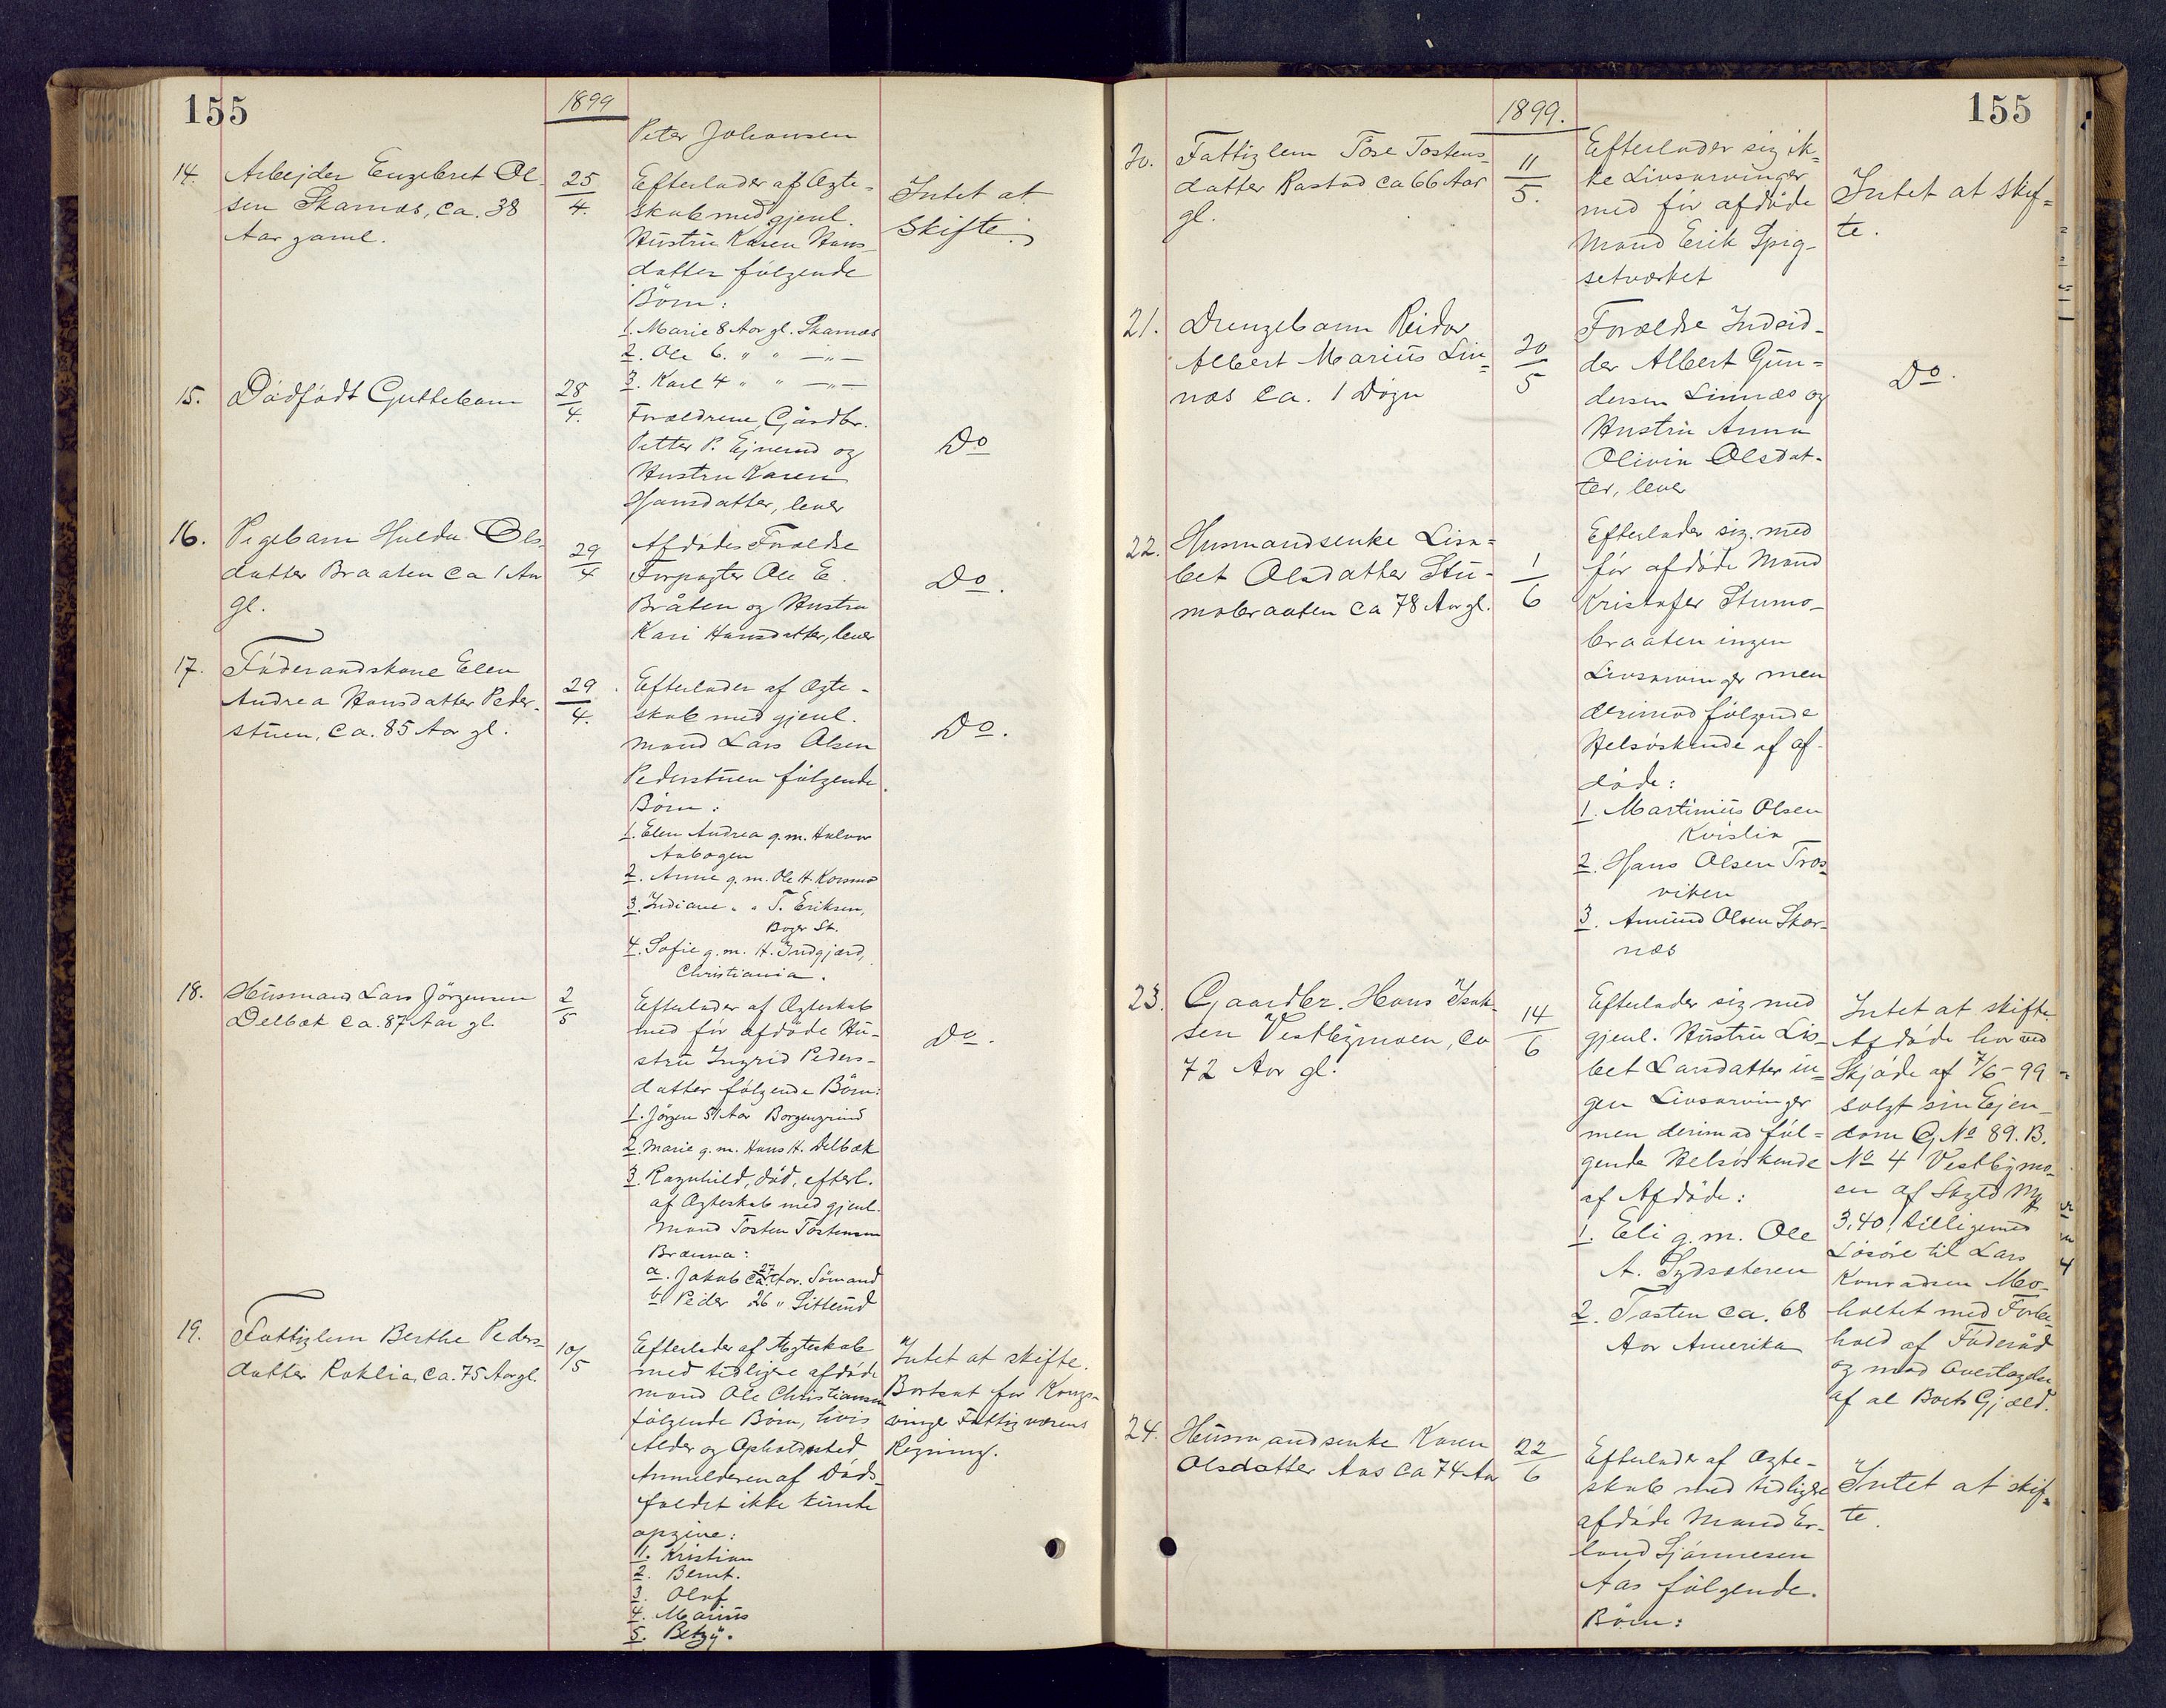 155
1899
Peter Johansen
14. Arbejder Engebret Ol-
sen Skarnæs, ca. 38
Aar gaml.
25/4.
Efterlader af Ægte-
skab med gjenl.
Hustru Karen Hans-
datter følgende
Börn:
1. Marie 8 Aar gl. Skarnæs
2. Ole 6. " " —"—
3. Karl 4 " " —"—
Intet at
skifte.
15. Dödfödt Guttebarn
28/4.
Forældrene, Gårdbr.
Petter P. Ejnerud og
Hustru Karen
Hansdatter, lever
Do
16. Pigebarn Hulda Ols-
datter Braaten ca 1 Aar
gl.
29/4
Afdödes Forældre
Forpagter Ole E.
Bråten og Hustru
Kari Hansdatter, lever
Do.
17. Föderaadskone Elen
Andrea Hansdatter Peder-
stuen, ca. 85 Aar gl.
29/4.
Efterlader af Ægte-
skab med gjenl.
Mand Lars Olsen
Pederstuen fölgende
Börn:
1. Elen Andrea g. m. Halvor
Aabogen
2. Anne g. m. Ole H. Korsmo
3. Indiane " " T. Eriksen,
Boger St.
4. Sofie g. m. H. Indgjærd,
Christiania.
Do.
18. Husmand Lars Jörgensen
Delbæk ca. 87 Aar gl.
2/5
Efterlader af Ægteskab
med för afdöde Hu-
stru Ingrid Peders-
datter fölgende Börn:
1. Jörgen 51 Aar Borgengrind
2. Marie g. m. Hans H. Delbæk
3. Ragnhild, död, efterl.
af Ægteskab med gjenl.
Mand Tosten Tostensen
Brænna:
a. Jakob ca. 27 Aar. Sömand
b. Peder 26 " Sitterud
Do.
19. Fattiglem Berthe Peders-
datter Roklia, ca. 75 Aar gl.
10/5
Efterlader af Ægteskab
med tidligere afdöde
Mand Ole Christiansen
fölgende Börn, hvis
Alder og Opholdssted
Anmelderen af Döds-
faldet ikke kunde
opgive:
1. Kristian
2. Bernt.
3. Olaf
4. Marius
5. Betzy.
Intet at skifte.
Bortsat for Kongs-
vinger Fattigvæsens
Regning.
155
1899.
20. Fattiglem Tore Tostens-
datter Rastad ca 66 Aar
gl.
11/5.
Efterlader sig ik-
ke Livsarvinger
med för afdöde
Mand Erik Spig-
setværket
Intet at skif-
te.
21. Drengebarn Reidar
Albert Marius Lin-
næs ca. 1 Dögn
20/5
Forældre Indsid-
der Albert Gun-
dersen Linnæs og
Hustru Anna
Olivia Olsdat-
ter, lever
Do.
22. Husmandsenke Lisa-
bet Olsdatter Stu-
mobraaten ca 78 Aar gl.
1/6
Efterlader sig med
för afdöde Mand
Kristofer Stumo-
braaten ingen
Livsarvinger men
derimod fölgende
Helsöskende af af-
döde:
1. Martinius Olsen
Kvislia
2. Hans Olsen Tros-
viken
3. Amund Olsen Skar-
næs
23. Gaardbr. Hans Isak-
sen Vestbymoen, ca
72 Aar gl.
14/6
Efterlader sig med
gjenl. Hustru Lis-
bet Larsdatter in-
gen Livsarvinger
men derimod föl-
gende Helsöskende
af Afdöde:
1. Eli g. m. Ole
A. Sydsæteren
2. Tosten ca. 68
Aar Amerika
Intet at skifte
Afdöde har ved
Skjöde af 7/6-99
solgt sin Ejen-
dom G. No 89. B.
No 4 Vestbymo-
en af Skyld Mk
3,40, tilligemed
Lösöre til Lars
Konradsen Mo-
holtet med Forbe-
hold af Föderåd
og mod Overtagelse
af al Boets Gjæld.
24. Husmandsenke Karen
Olsdatter Aas ca 74 Aar
22/6
Efterlader af Ægte-
skab med tidligere
afdöde Mand Er-
land Sjönnesen
Aas fölgende.
Börn:
Intet at skif-
te.